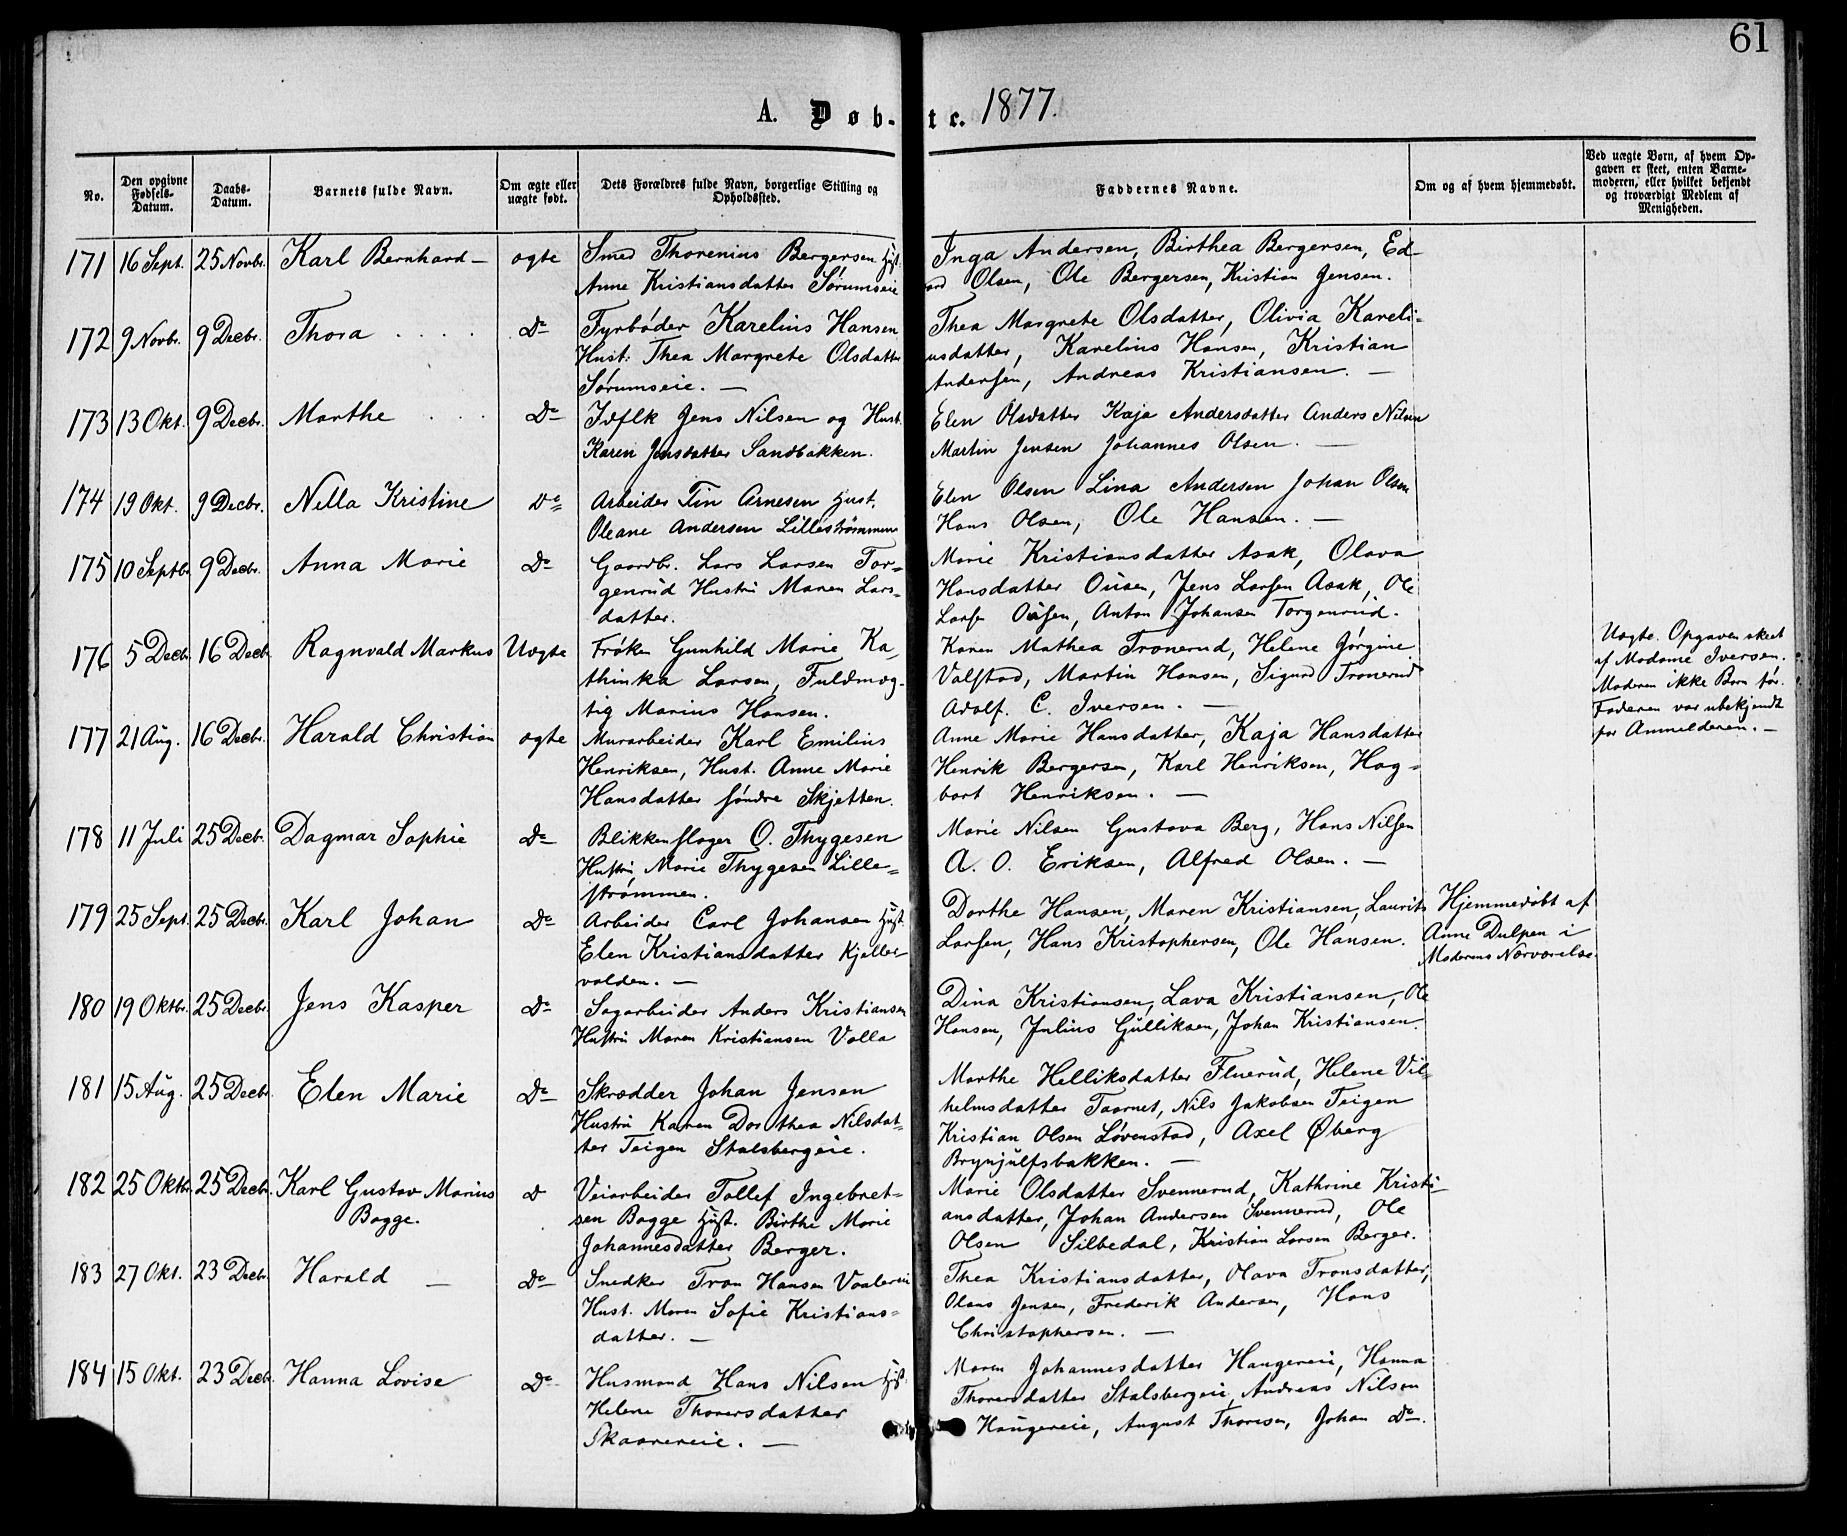 61
A. Døb- te. 1877.
No.
Den opgivne Fødsels-Datum.
Daabs-Datum.
Barnets fulde Navn.
Om ægte eller uægte født.
Dets Forældres fulde Navn, borgerlige Stilling og Opholdssted.
Faddernes Navne.
Om og af hvem hjemmedøbt.
Ved uægte Børn, af hvem Op-
gaven er skeet, enten Barne-
moderen, eller hvilket bekjendt
og troværdigt Medlem af
Menigheden.
171 16 Sept. 25 Novbr. Karl Bernhard – ægte Smed Thorenius Bergersen Hust. Inga Andersen, Birthea Bergersen, Ed-
Anne Kristiansdatter Sørumseie ard Olsen, Ole Bergersen, Kristian Jensen.
172 9 Novbr. 9 Decbr. Thora . . . . Do Fyrbøder Karelius Hansen Thea Margrete Olsdatter, Olivia Kareli-
Hust. Thea Margrete Olsdatter usdatter, Karelius Hansen, Kristian
Sørumseie. – Andersen, Andreas Kristiansen. –
173 13 Okt. 9 Decbr. Marthe . . . Do Idflk Jens Nilsen og Hust. Elen Olsdatter Kaja Andersdatter Anders Nilsen
Karen Jensdatter Sandbakken. Martin Jensen Johannes Olsen. –
174 19 Okt. 9 Decbr. Nella Kristine Do Arbeider Tin Arnesen Hust. Elen Olsen Lina Andersen Johan Olsen
Oleane Andersen Lillestrømmen Hans Olsen, Ole Hansen. –
175 10 Septbr. 9 Decbr. Anna Marie Do Gaardbr. Lars Larsen Tor- Marie Kristiansdatter Asak, Olava
genrud Hustru Maren Lars- Hansdatter Ousen, Jens Larsen Asak, Ole
datter. Larsen Ousen, Anton Johansen Torgenrud.
176 5 Decbr. 16 Decbr. Ragnvald Markus Uægte Frøken Gunhild Marie Ka- Karen Mathea Tronerud, Helene Jørgine Uægte. Opgaven skeet
thinka Larsen, Fuldmæg- Valstad, Martin Hansen, Sigurd Tronerud af Madame Iversen.
tig Marius Hansen. Adolf. C. Iversen. – Moderen ikke Barn før.
177 21 Aug. 16 Decbr. Harald Christian ægte Murarbeider Karl Emilius Anne Marie Hansdatter, Kaja Hansdatter Faderen var ubekjendt
Henriksen, Hust. Anne Marie Henrik Bergersen, Karl Henriksen, Hag- for Anmelderen. –
Hansdatter søndre Skjetten. bart Henriksen. –
178 11 Juli 25 Decbr. Dagmar Sophie Do Blikkenslager O. Thygesen Marie Nilsen Gustava Berg, Hans Nilsen
Hustru, Marie Thygesen Lille- A. O. Eriksen, Alfred Olsen. –
strømmen.
179 25 Sept. 25 Decbr. Karl Johan Do Arbeider Carl Johansen Hust. Dorthe Hansen, Maren Kristiansen, Laurits Hjemmedøbt af
Elen Kristiansdatter Kjeller- Larsen, Hans Kristophersen, Ole Hansen. Anne Dulpen i
volden. – Moderens Nærværelse.
180 19 Oktbr. 25 Decbr. Jens Kasper Do Sagarbeider Anders Kristiansen Dina Kristiansen, Lava Kristiansen, Ole
Hustru Maren Kristiansen Volla Hansen, Julius Gulliksen, Johan Kristiansen.
181 15 Aug. 25 Decbr. Elen Marie Do Skrædder Johan Jensen Marthe Helliksdatter Fluerud, Helene Vil-
Hustru Karen Dorthea Nilsdat- helmsdatter Taarnet, Nils Jakobsen Teigen
ter Teigen Stalsbergeie. Kristian Olsen Løvenstad, Axel Øberg
Brynjulfsbakken. –
182 25 Oktbr. 25 Decbr. Karl Gustav Marius D Veiarbeider Tollef Ingebret- Marie Olsdatter Svennerud, Kathrine Kristi-
Bagge. sen Bagge Hust. Birthe Marie ansdatter, Johan Andersen Svennerud, Ole
Johannesdatter Berger. Olsen Silbedal, Kristian Larsen Berger.
183 27 Okt. 23 Decbr. Harald – Do Snedker Tron Hansen Vaalereie Thea Kristiansdatter, Olava Tronsdatter,
Hust. Maren Sofie Kristians- Olaus Jensen, Frederik Andersen, Hans
datter. – Christophersen. –
184 15 Okt. 23 Decbr. Hanna Lovise Do Husmand Hans Nilsen Hust. Maren Johannesdatter Haugereie, Hanna
Helene Thorersdatter Thorersdatter Stalsbergeie, Andreas Nilsen
Skaarereie. – Haugereie, August Thoresen, Johan Do.